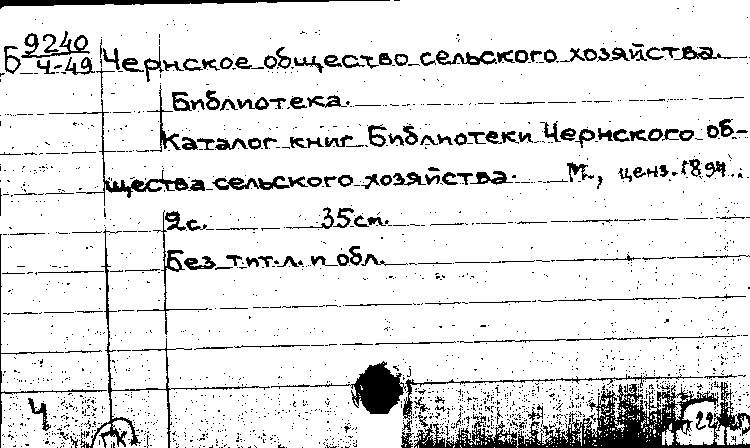 Б 9240/4-49 Чернское общество сельского хозяйства.
Библиотека.
Каталог книг Библиотеки Чернского об-
щества сельского хозяйства. М., ценз. 1894.
2с. 35см.
Без тит. л. и обл.
Ч